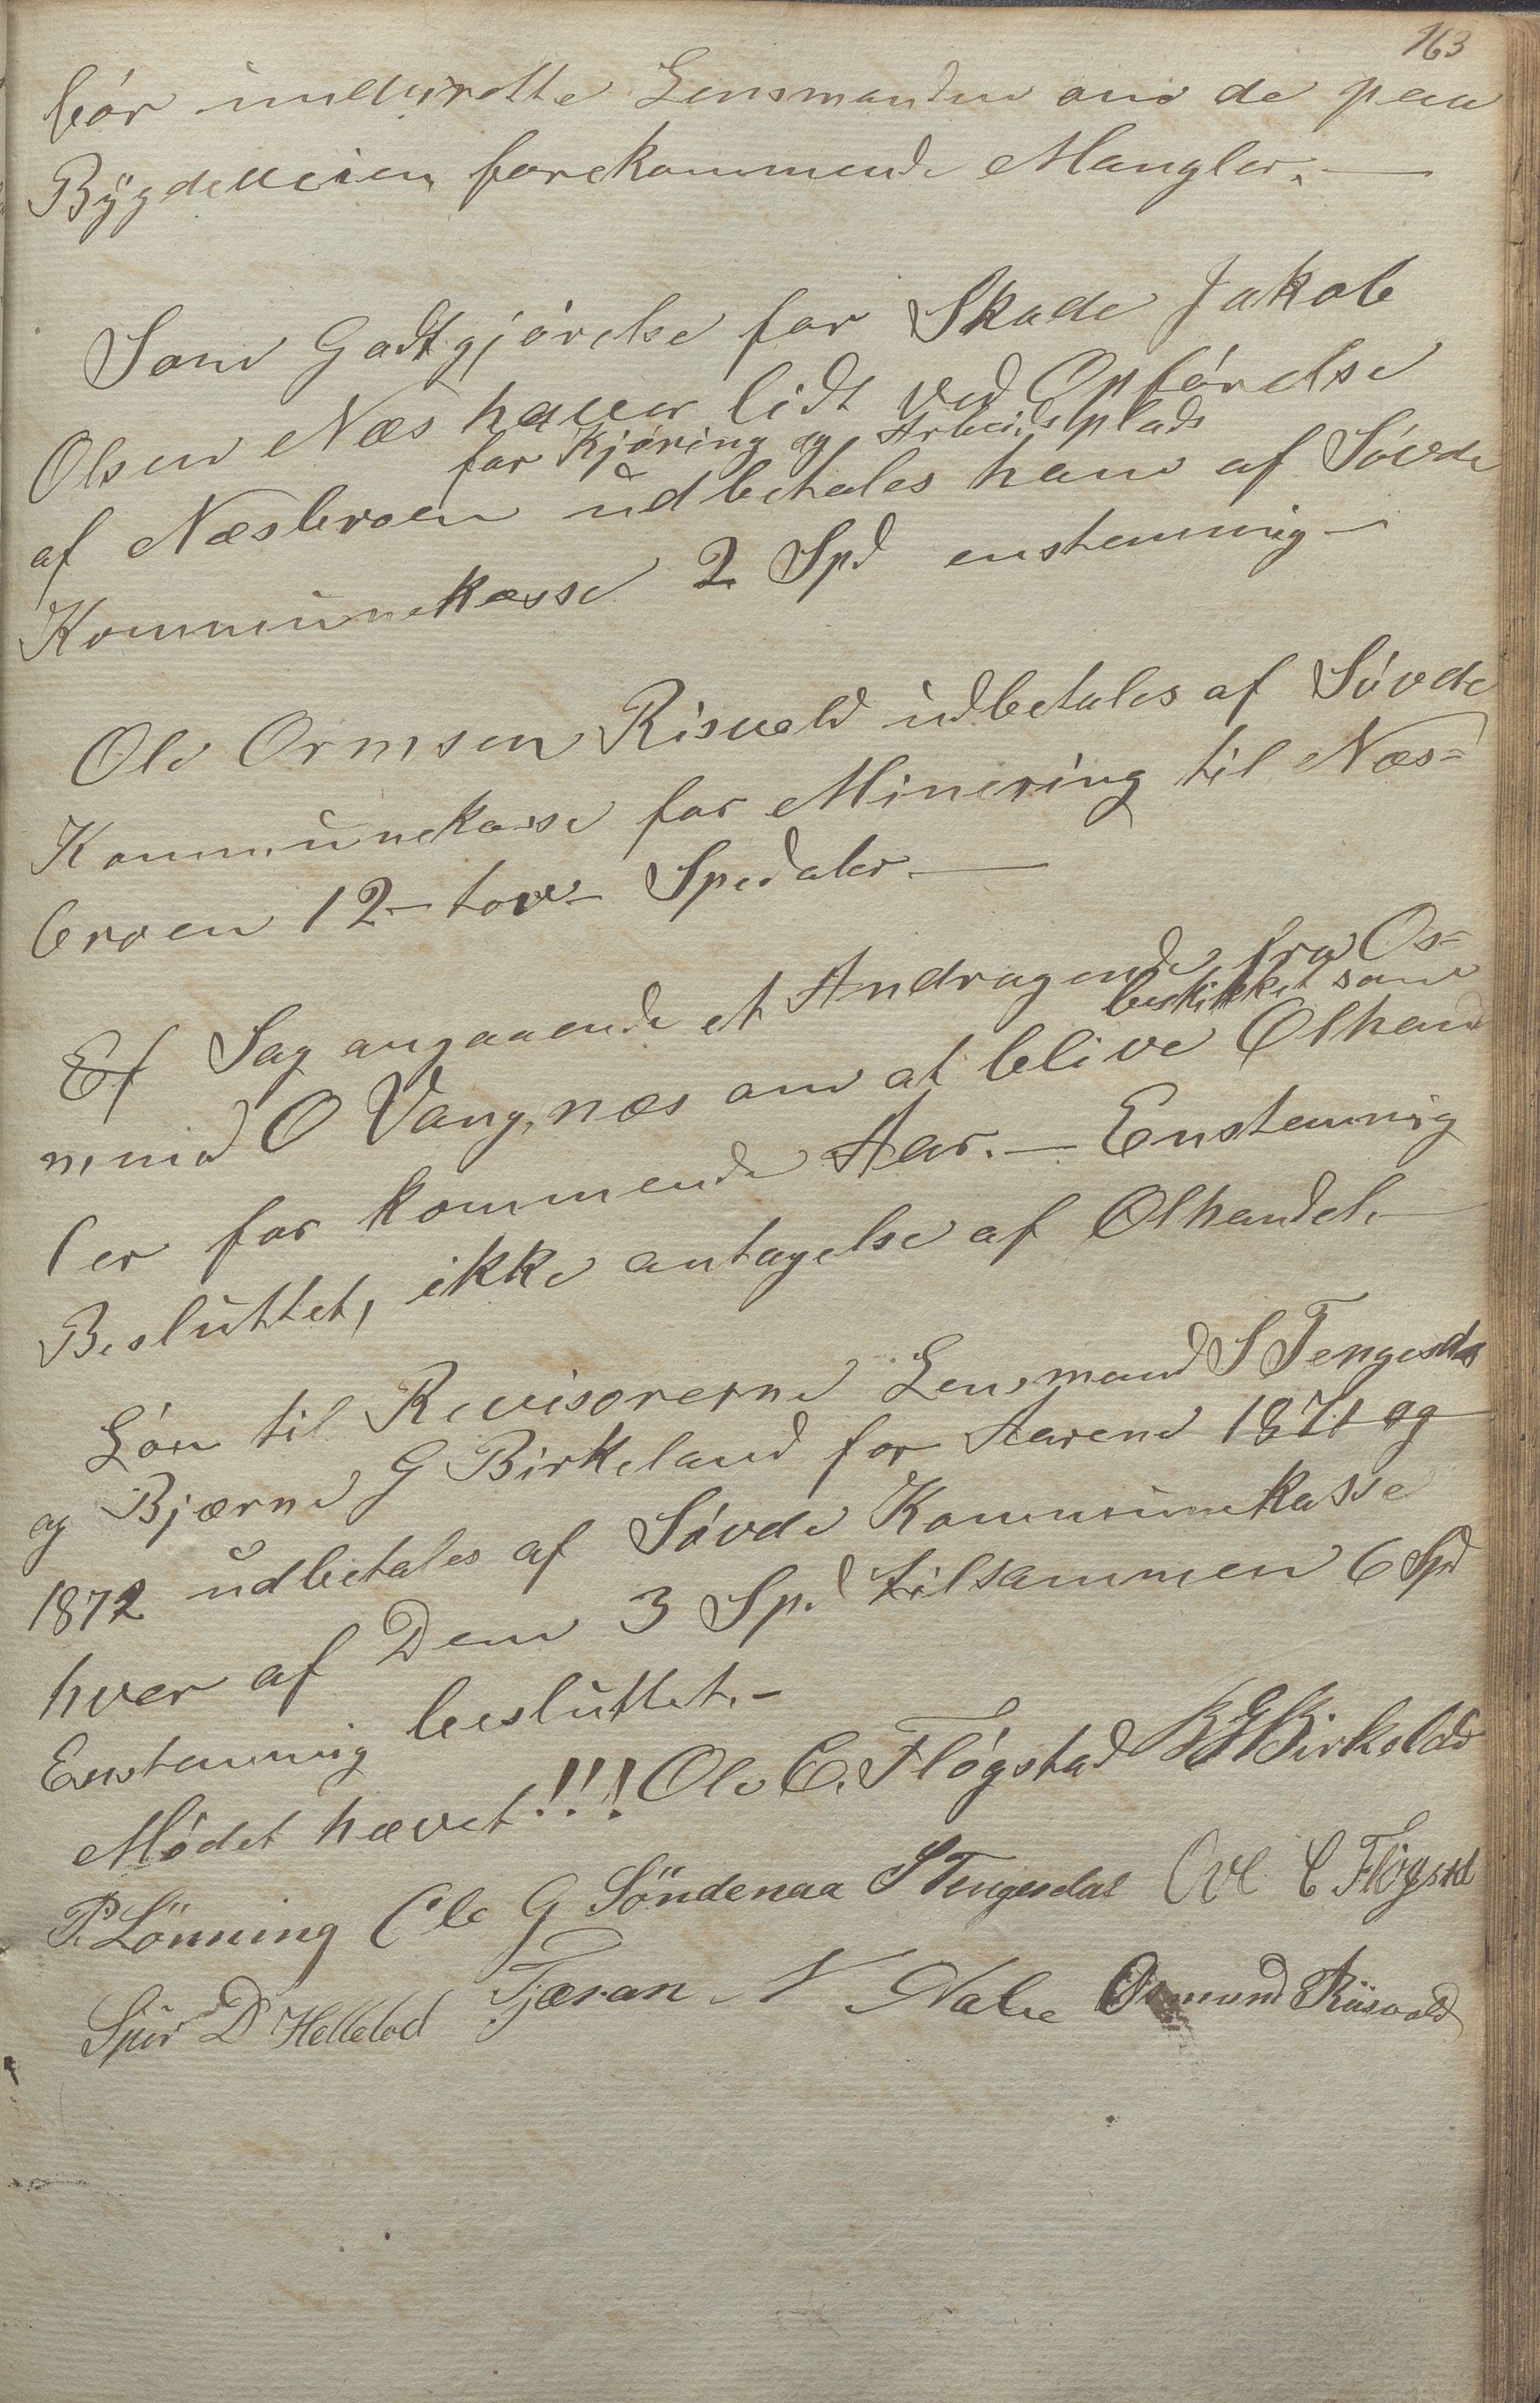 163
bör underrette Lensmanden om de paa
Bÿgdeveien forekommende Mangler. —
Som Godtgjörelse for Skade Jakob
Olsen Næs haver lidt ved Opförelse
for Kjöring og Arbeidsplads
af Næsbroen udbetales ham af Sövde
Kommunekasse 2 Spd enstemmig —
Ole Ormsen Risvold udbetales af Sövde
Kommunekasse for Minering til Næs=
broen 12 – tolv – Spedaler. —
Ef Sag angaaende et Andragende fra Os=
beskikket som
mund O Vangsnes om at blive Ölhand
ler for kommende Aar. — Enstemmig
Besluttet, ikke antagelse af Ölhandel. —
Lön til Revisorerne Lensmand S Tengesda
og Bjærne G Birkeland for Aarene 1871 og
1872 udbetales af Sövde Kommunekasse
hver af Dem 3 Spd tilsammen 6 Spd
Enstemmig besluttet. –
Mödet hævet!!! Ole C. Flögstad B G Birkeland
P. Lönning Ole G Söndenaa S Tengesdal Ove C Flögstd
D Helleland Tjæran N Osmund Riisvold